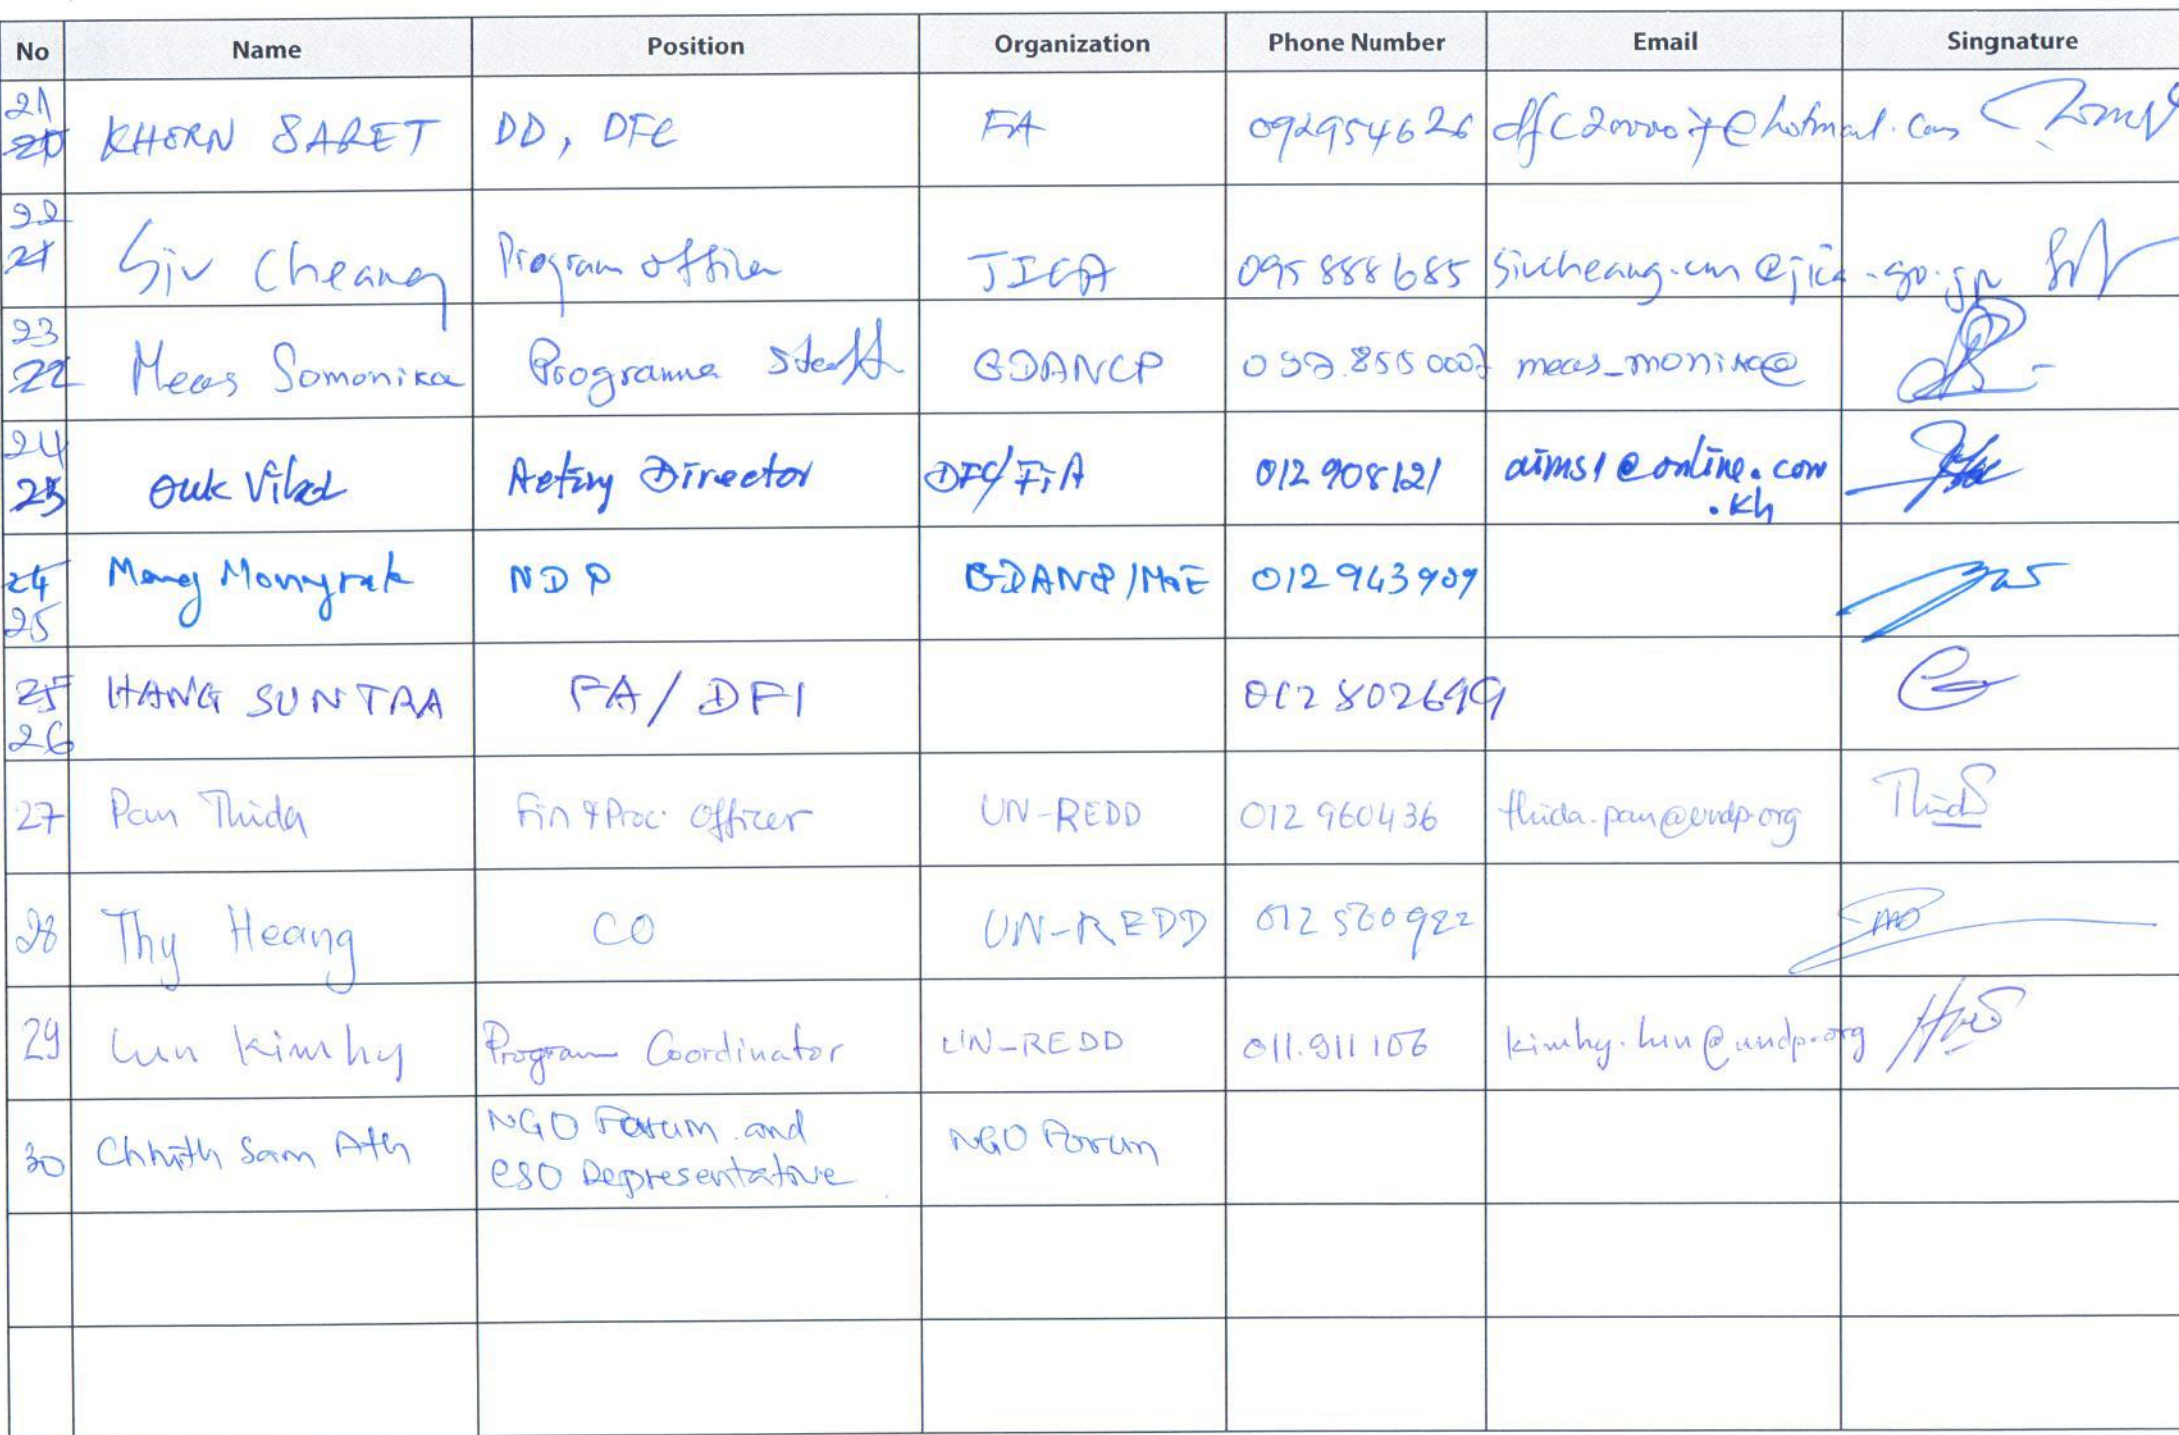 No Name Position Organization Phone Number Email Singnature
21
20 KHORN SARET DD, DFC FA 092954626
22
21 Siv Cheang Program officer JICA 095 888 685 sivcheang.un@jica.go.jp
23
22 Meas Somonika Programme staff GDANCP meas_monika@
24
23 Ouk Vibol Acting Director DFC/FiA 012 908121 aims1@online.com
.kh
24 Meng Monyrak NDP GDANCP/MoE 012 943909
25
25 HANG SUNTRA FA/DFI 012 802699
26
27 Pan Thida Fin & Proc. Officer UN-REDD 012 960436 thida.pan@undp.org
28 Thy Heang CO UN-REDD 012 500922
29 Lun Kimhy Program Coordinator UN-REDD 011.911 106 kimhy.lun@undp.org
NGO Forum and
30 Chhith Sam Ath NGO Forum
CSO Representative